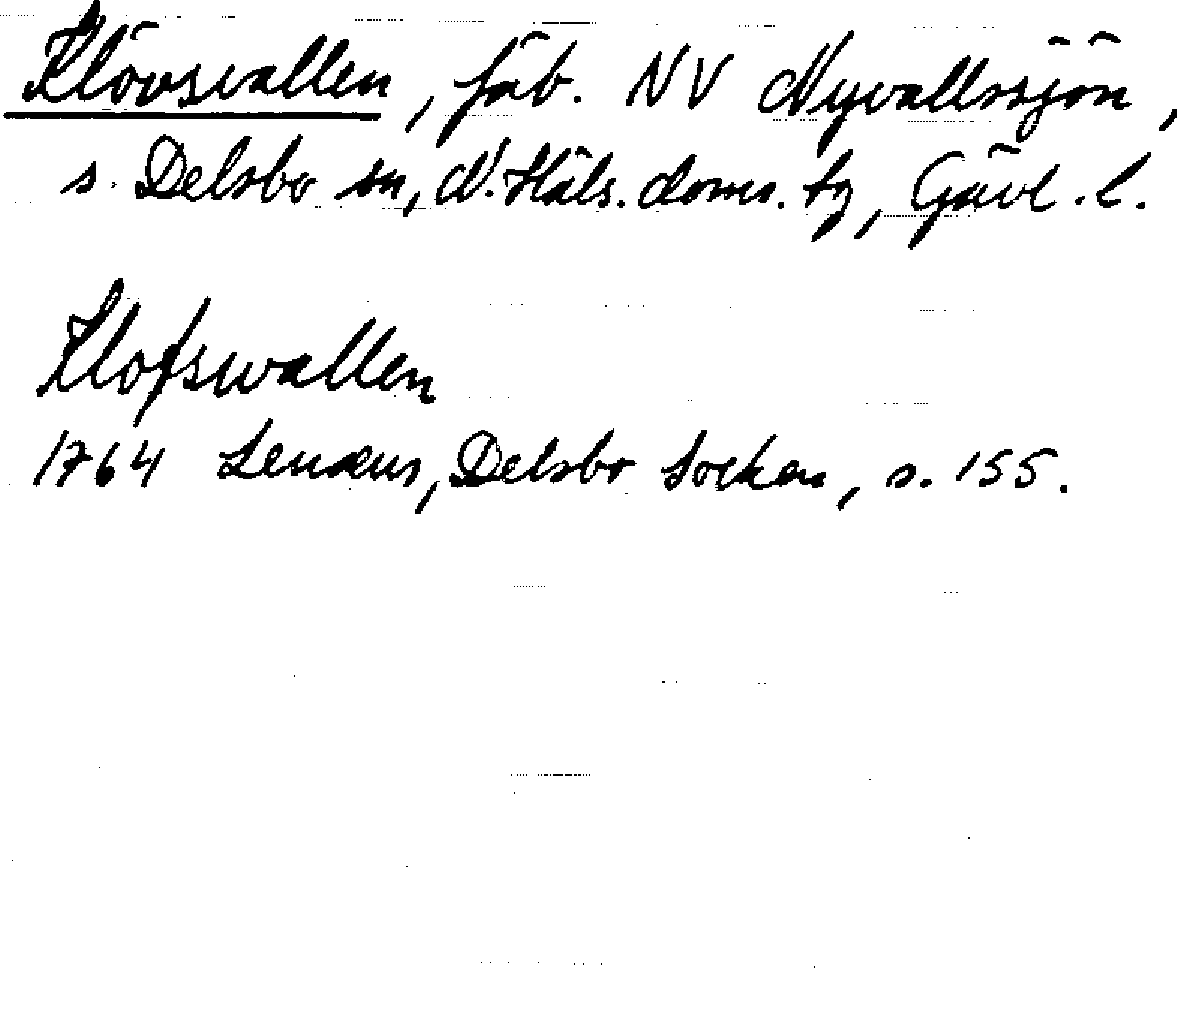 Klövsvallen, fäb. NV Nyvallssjön,
s. Delsbo sn, N. Häls. doms. tg, Gävl. l.
Klofswallen
1764 Lenæus, Delsbo Socken, s. 155.